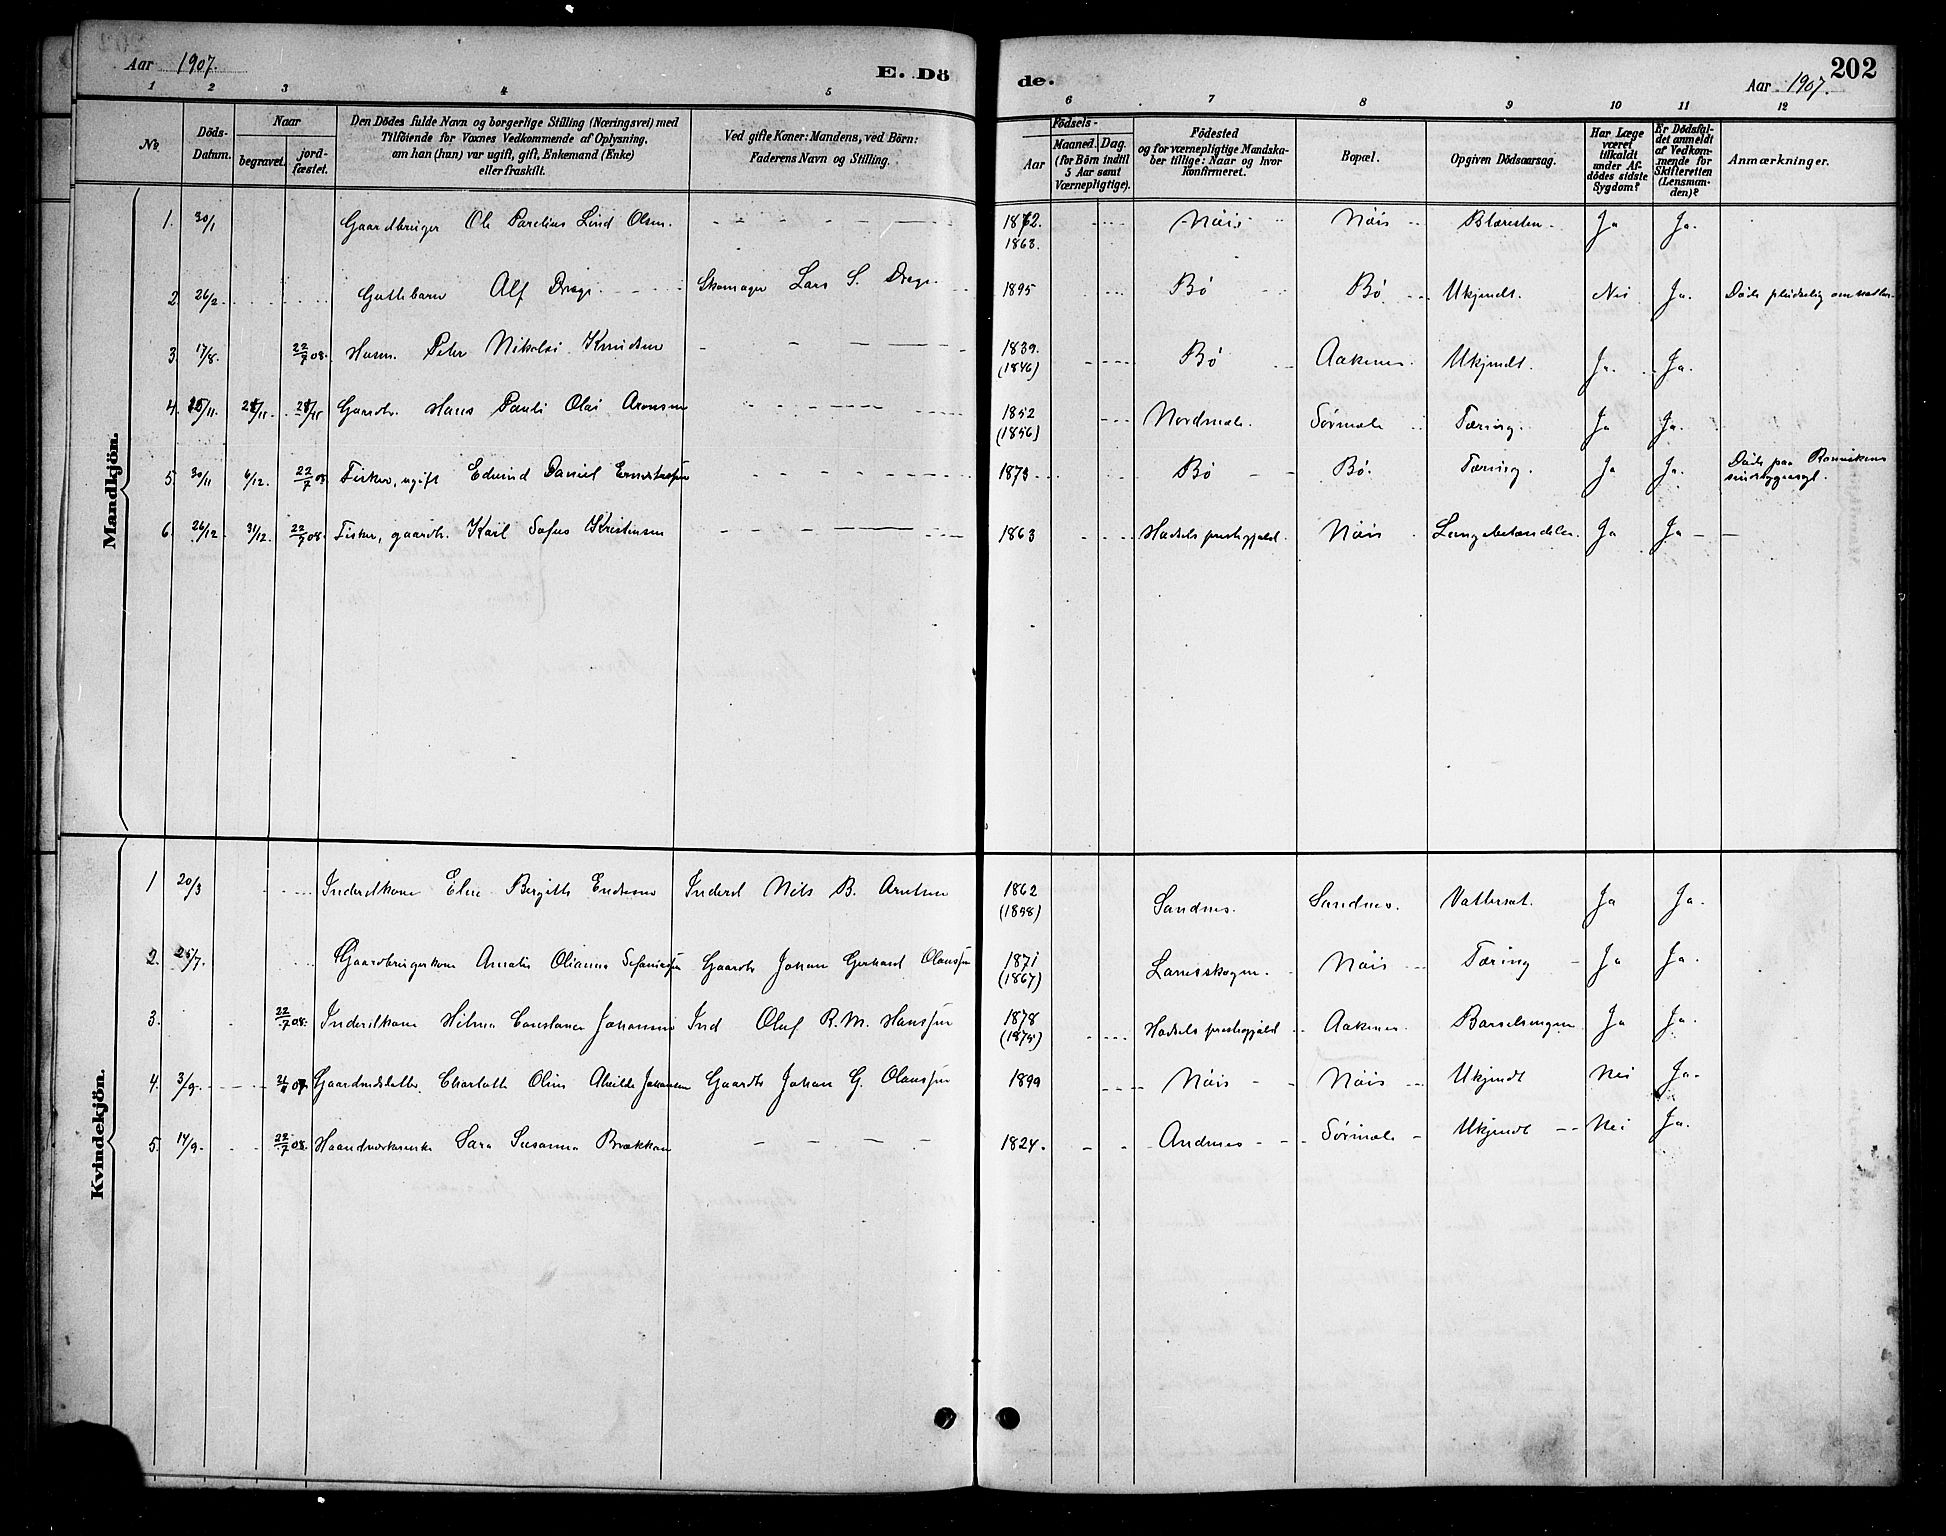 Aar 1907. E. Dö de. Aar 1907. 202
1 2 3 4 5 6 7 8 9 10 11 12
No. Döds-Datum. Naar begravet. jordfæstet. Den Dödes fulde Navn og borgerlige Stilling (Næringsvei) med Tilföiende for Voxnes Vedkommende af Oplysning, om han (hun) var ugift, gift, Enkemand (Enke) eller fraskilt. Ved gifte Koner: Mandens, ved Börn: Faderens Navn og Stilling. Födsels- Aar Maaned. Dag. (for Börn indtil 5 Aar samt Værnepligtige). Födested og for værnepligtige Mandskaber tillige: Naar og hvor konfirmeret. Bopæl. Opgiven Dödsaarsag. Har Læge været tilkaldt under Afdödes sidste Sygdom? Er Dödsfaldet anmeldt af Vedkommende for Skifteretten (Lensmanden)? Anmærkninger.
Mandkjön.
1. 30/1 Gaardbruger Ole Parelius Lind Olsen. 1872. 1863. Nöis Nöis Blæresten. Ja Ja.
2. 26/2. Guttebarn Alf Drege Skomager Lars S. Drege 1895 Bö Bö Ukjendt. Nei Ja. Døde pludselig om natten.
3. 17/8. 22/7 08. Husm. Peter Nikolai Knudsen 1839. (1846) Bö Aakenes. Ukjendt. Ja. Ja.
4. 25/11. 28/11. 28/11 Gaardbr. Hans Pauli Olai Aronsen 1852 (1856) Nordmæle. Sörmæle Tæring. Ja Ja.
5. 30/11 6/12. 22/7 08 Fisker, ugift Edvind Daniel Ernstessen 1873 Bö Bö. Tæring. Ja Ja. Døde paa Rønviken sindssygeasyl.
6. 26/12 31/12. 22/7 08. Fisker, gaardbr. Karl Sofus Kristensen 1863 Hadsels prestegjæld. Nöis Lungebetændelse. Ja Ja
Kvindekjön.
1 20/3 Inderstkone Eline Bergitte Endresen Inderst Nils B. Arntsen 1862 (1858) Sandnes. Sandnes. Vattersot. Ja Ja.
2. 25/7. Gaardbrugerkone Amalie Olianna Sefaniassen Gaardbr Johan Gerhard Olaussen 1871 (1867) Lanesskogen. Nöis Tæring Ja Ja.
3. 22/7 08. Inderstkone Hilma Constance Johannsen Ind Oluf R. M. Hanssen 1878 (1875) Hadsels prestegjæld Aakenes. Barselsengen Ja Ja.
4. 3/9. 07 Gaardmdsdatter. Charlotte Oline Alvilde Johansen Gaardbr Johan G. Olaussen 1899 Nöis Nöis Ukjendt Nei Ja.
5. 14/9. 22/7 08. Haandverkerenke Sara Susanna Brækkan 1824. Andnes Sörmæle Ukjendt Nei Ja.